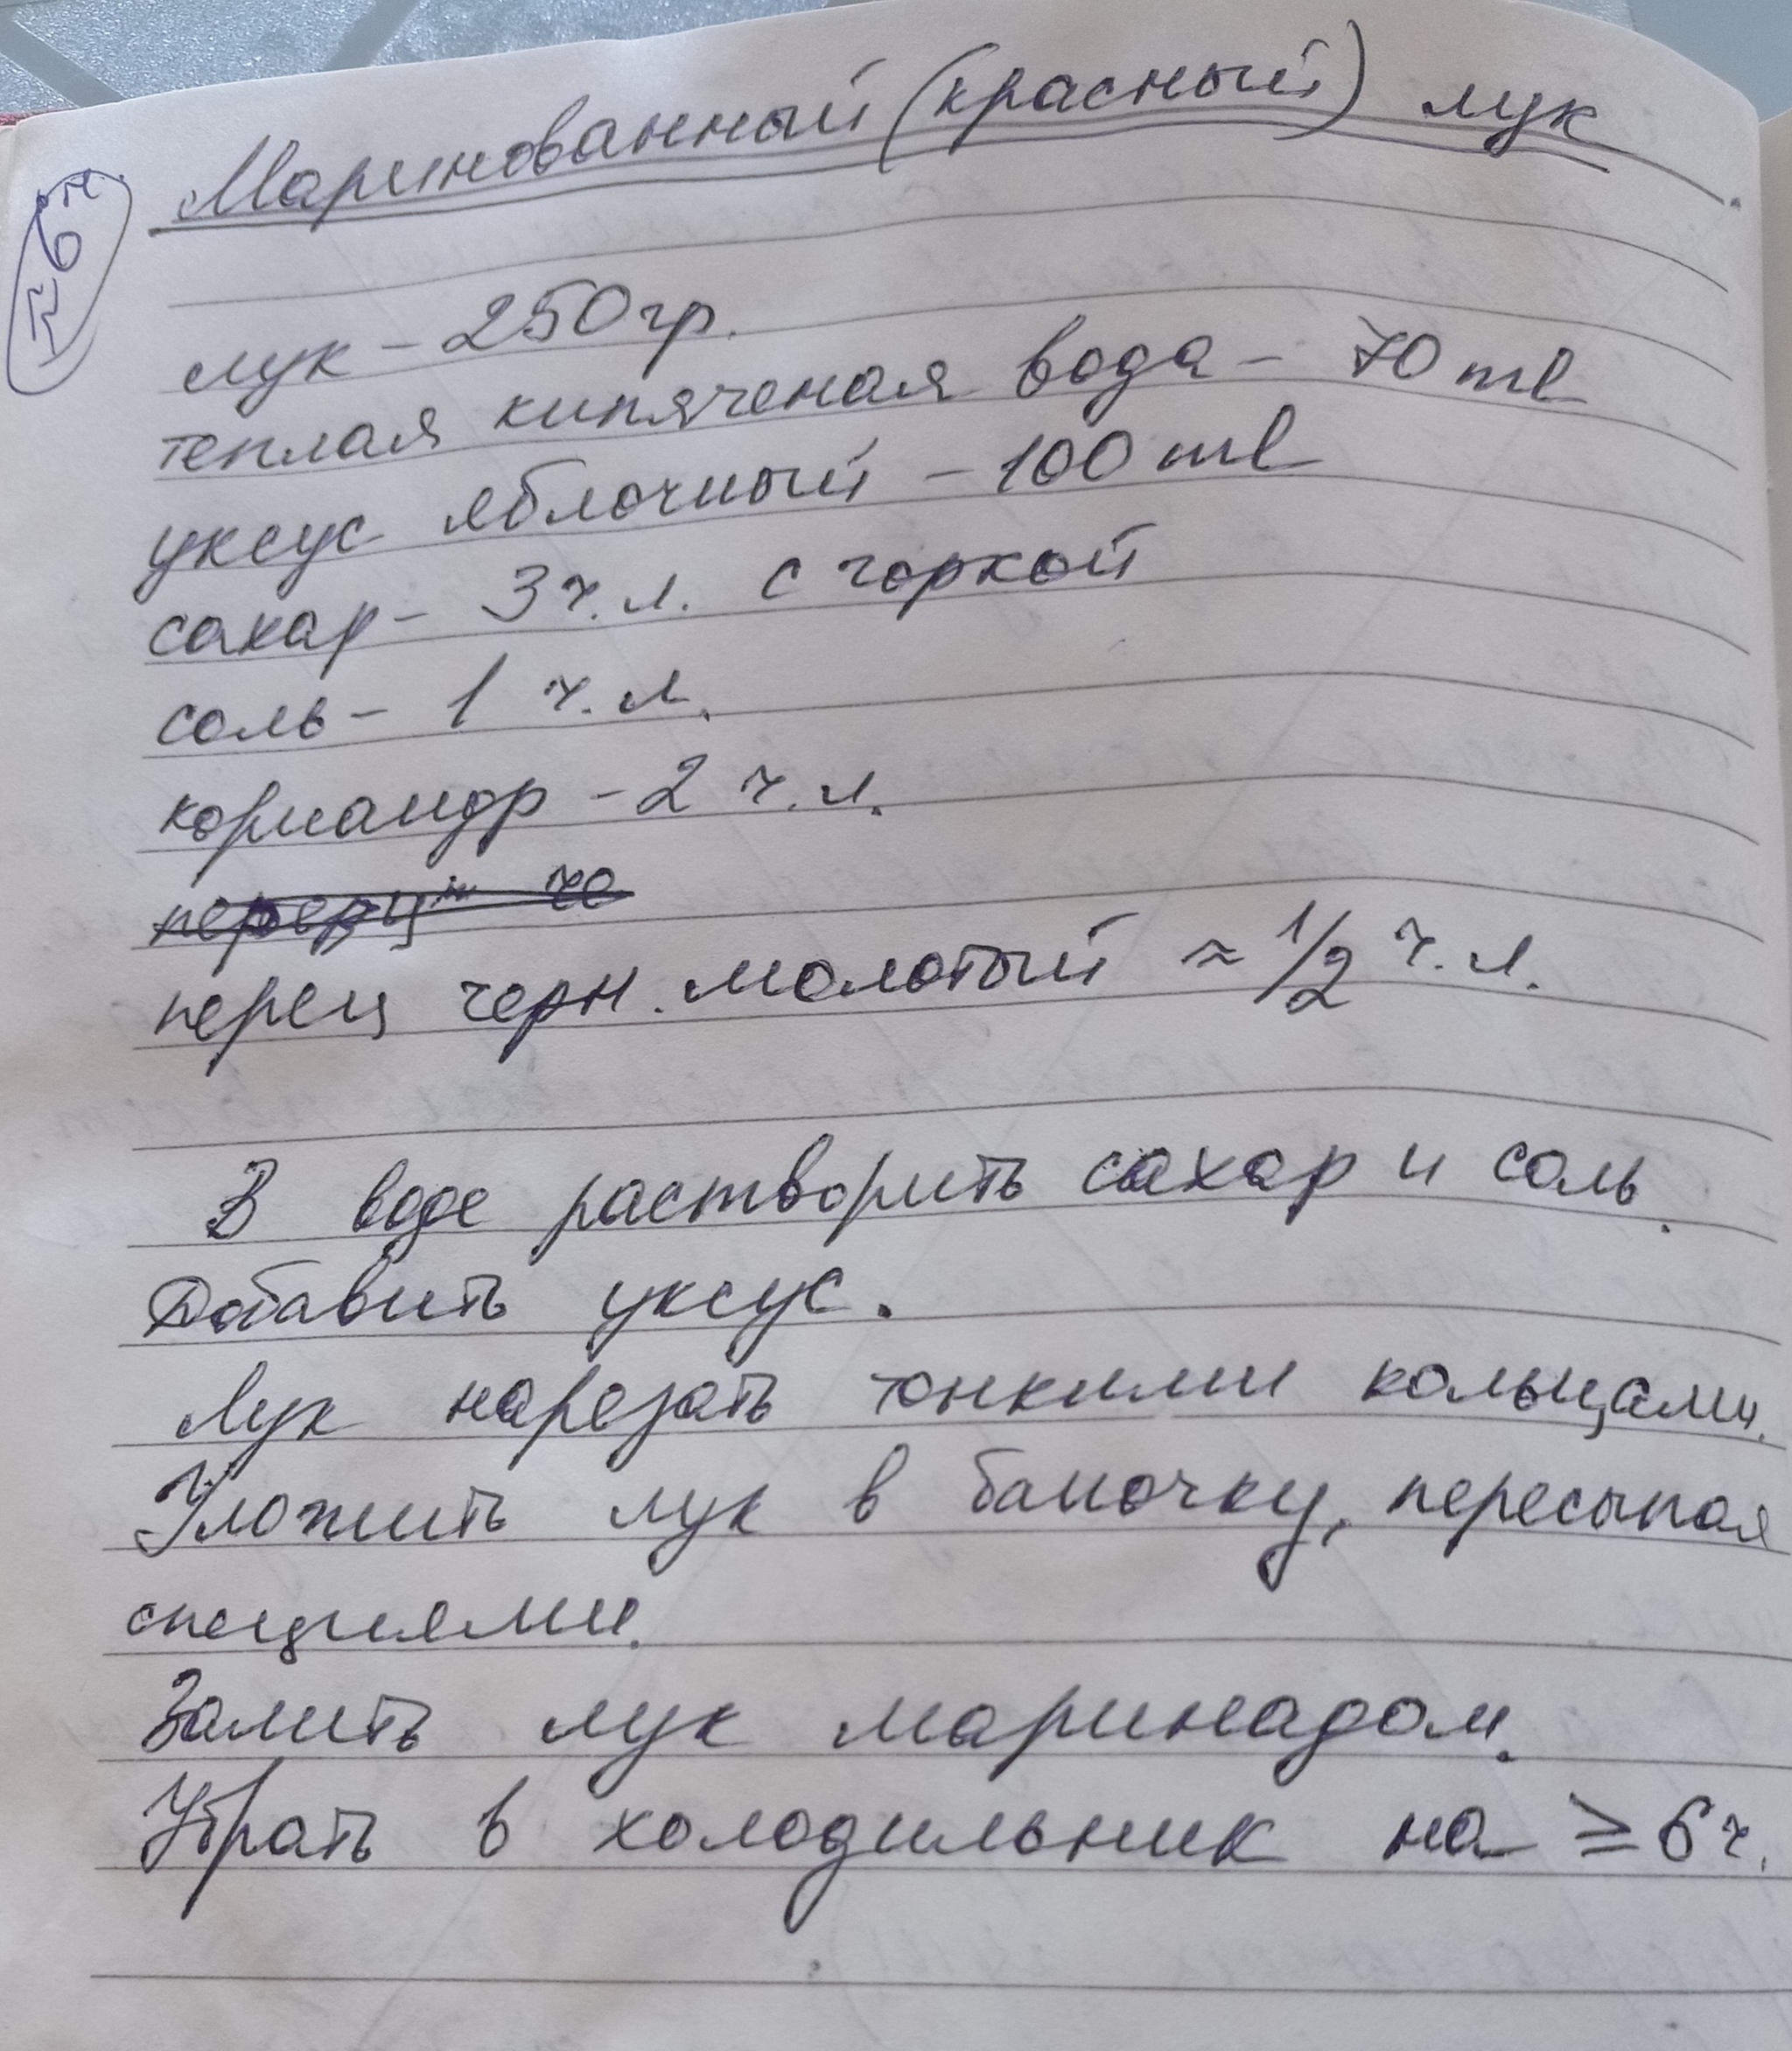 Маринованный (красный) лук
6 ч.
лук - 250 гр.
теплая кипяченая вода - 70 ml
уксус яблочный - 100 ml
сахар - 3 ч.л. с горкой
соль - 1 ч.л.
кориандр - 2 ч.л.
перец че
перец черн. молотый ≈ 1/2 ч.л.
В воде растворить сахар и соль.
Добавить уксус.
Лук нарезать тонкими кольцами.
Уложить лук в баночку, пересыпая
специями.
Залить лук маринадом.
Убрать в холодильник на ≥ 6 ч.